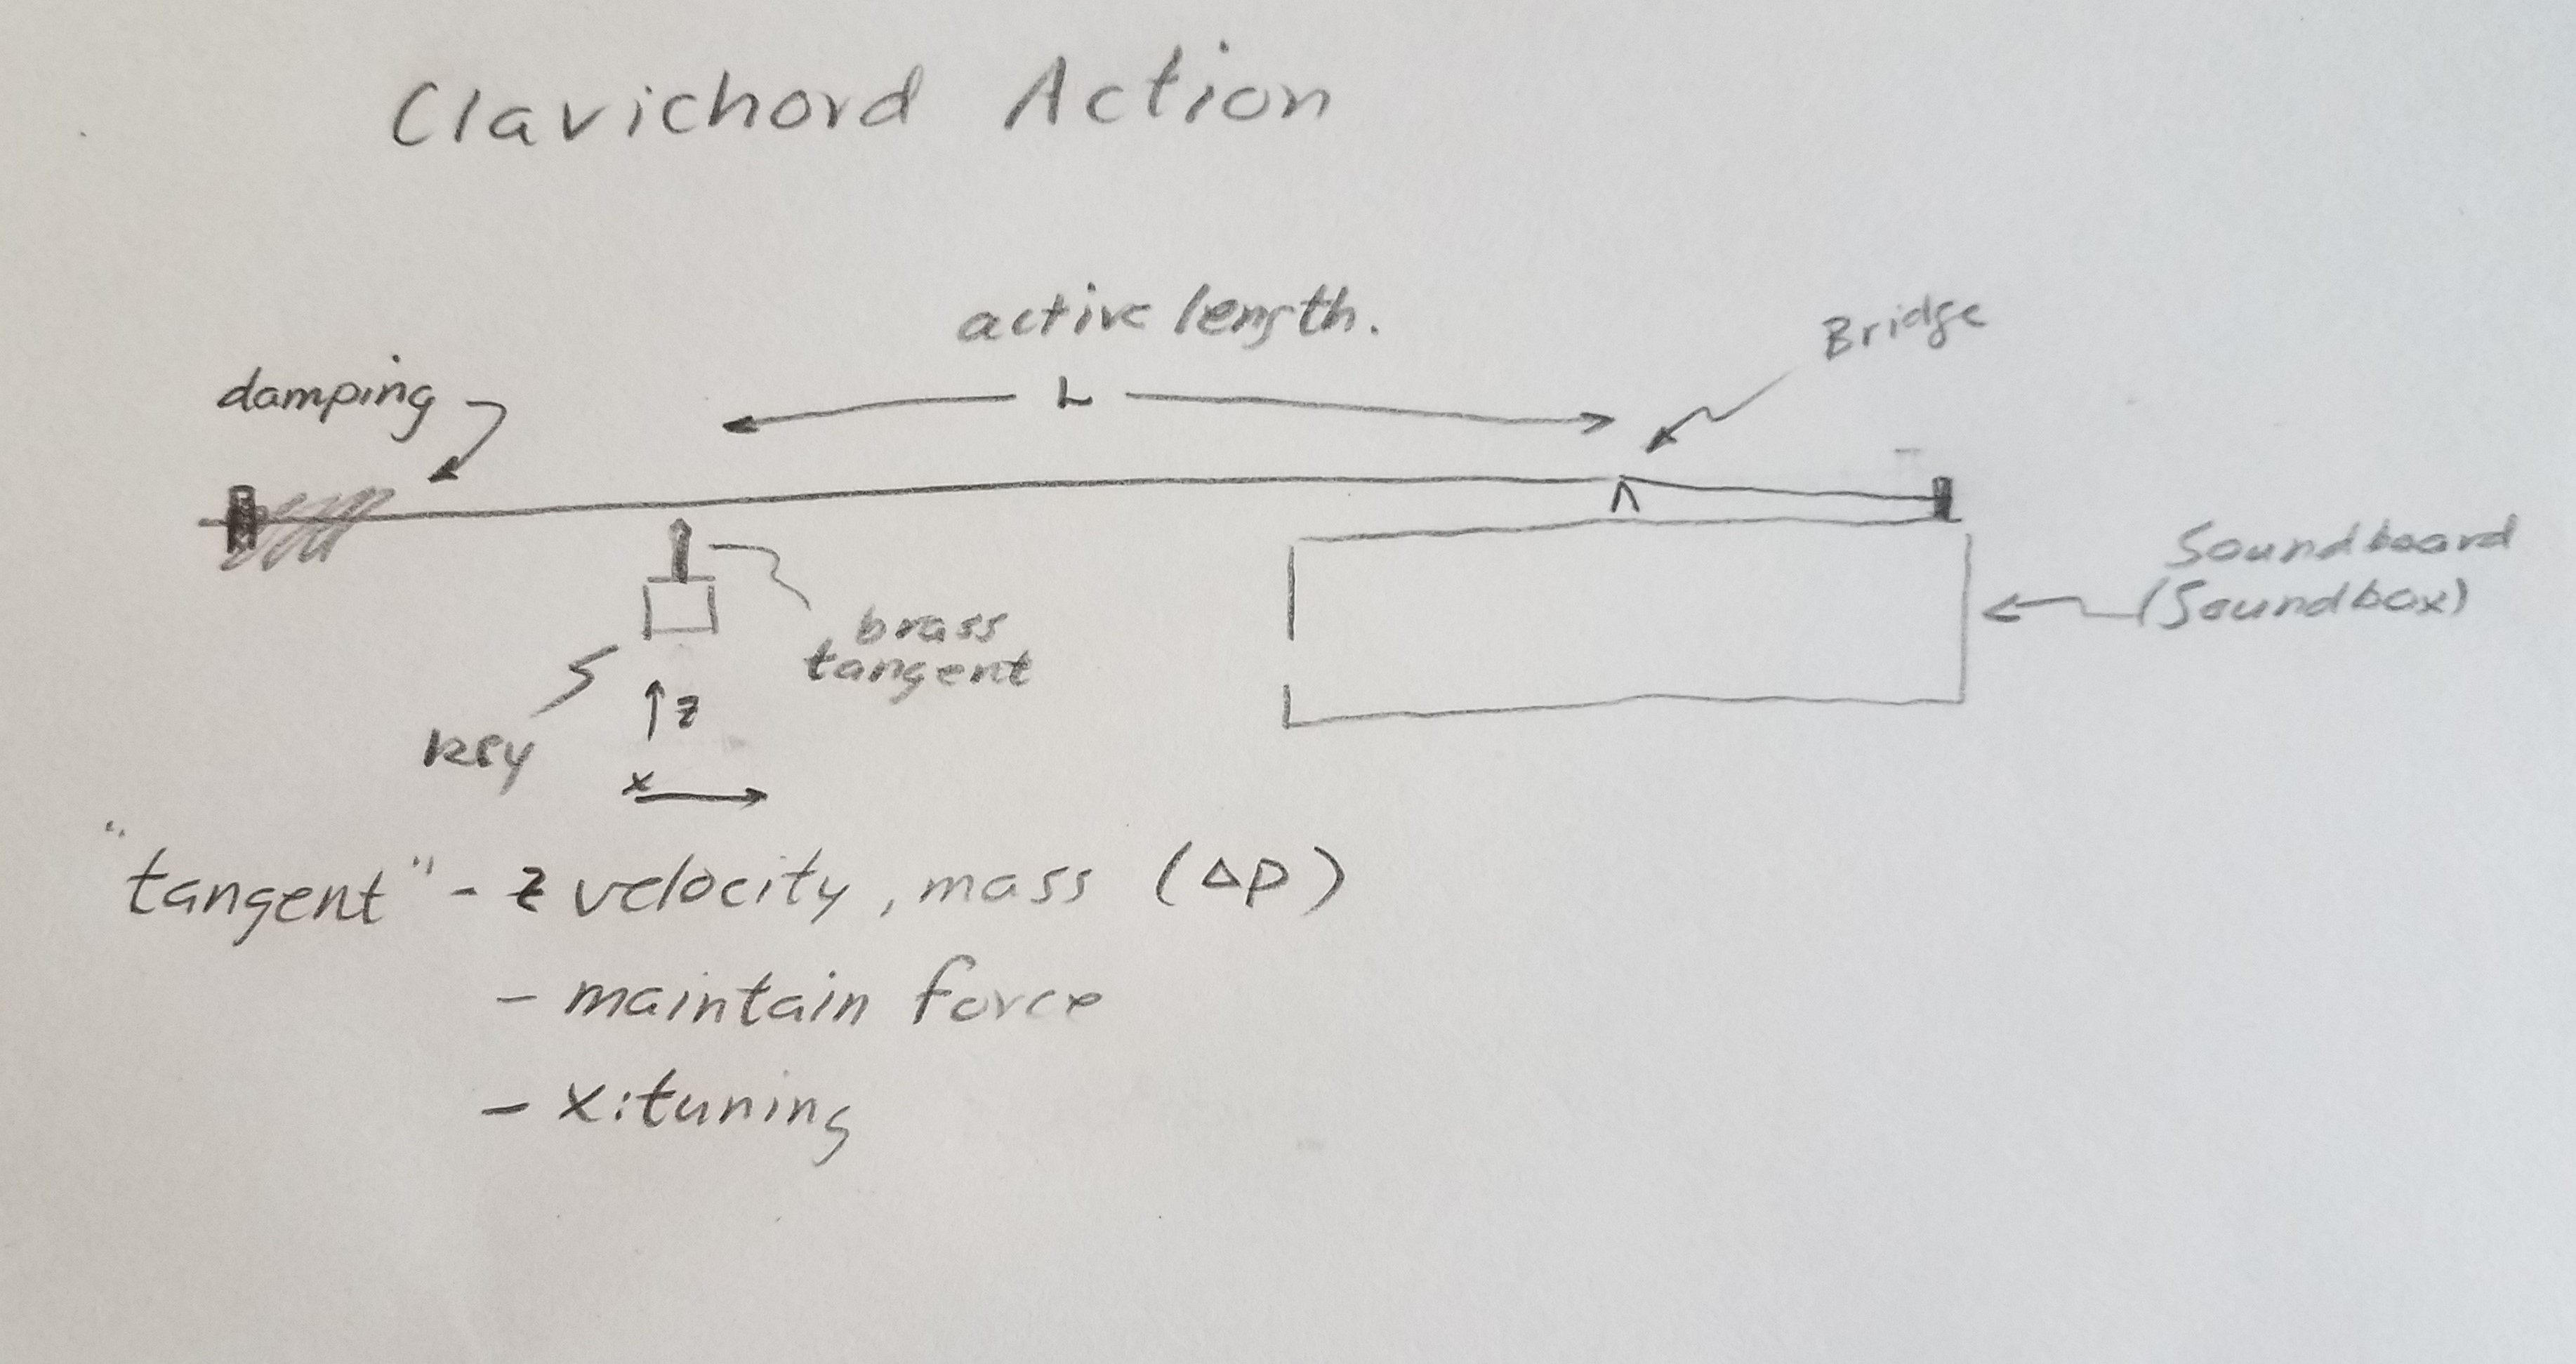 Clavichord Action
active length.
Bridge
damping
L
Soundboard
(Soundbox)
brass
tangent
key
z
x
"tangent" - z velocity, mass (Δp)
- maintain force
- x: tuning